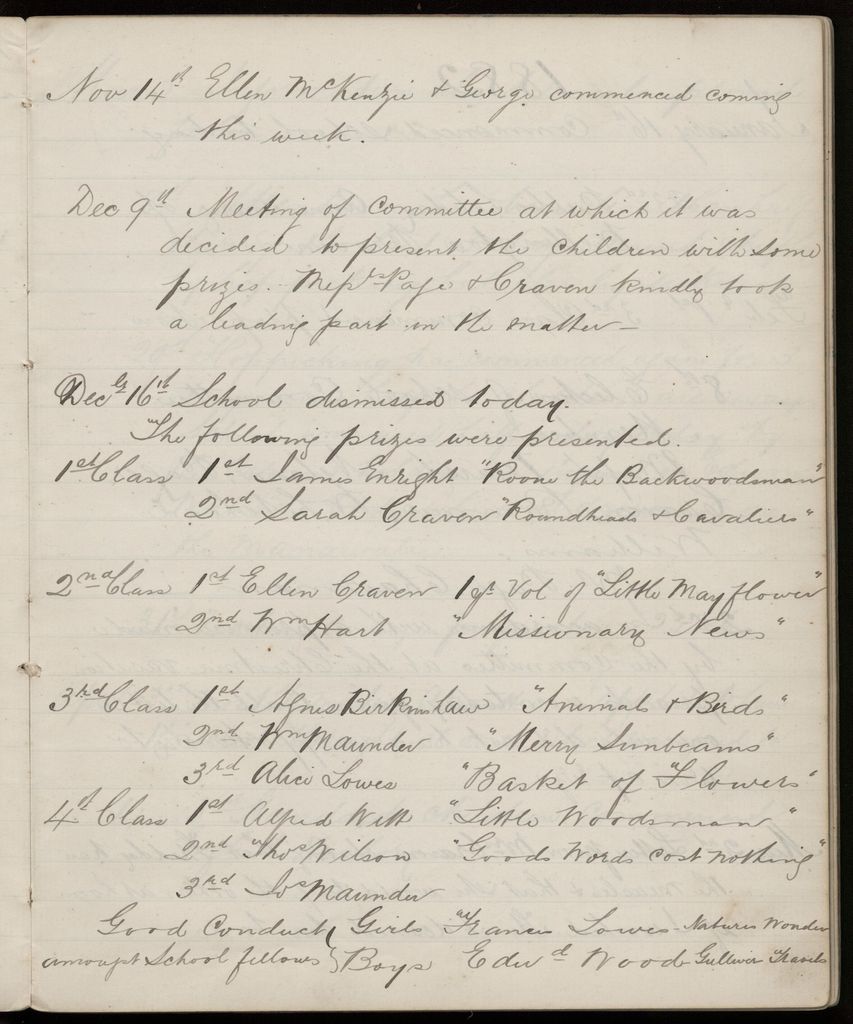 Nov 14th Ellen McKenzie & George commenced coming
this week.
Dec 9th Meeting of Committee at which it was
decided to present the children with some
prizes. Messrs Page & Craven kindly took
a leading part in the matter —
Decbr 16th School dismissed today.
The following prizes were presented.
1st Class 1st James Enright "Roone the Backwoodsman"
2nd Sarah Craven "Roundheads & Cavaliers"
2nd Class 1st Ellen Craven 1st Vol of "Little Mayflower"
2nd Wm Hart "Missionary News"
3rd Class 1st Agnes Birkinshaw "Animals & Birds"
2nd Wm Maunder "Merry Sunbeams"
3rd Alice Lowes "Basket of Flowers"
4th Class 1st Alfred Witt "Little Woodsman"
2nd Thos Wilson "Goods Words cost nothing"
3rd Maunder
Good Conduct { Girls Frances Lowes - Natures Wonder
amongst School fellows { Boys Edwd Wood Gulliver Travels